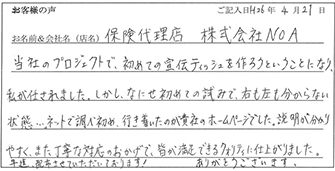 お客様の声
ご記入日 H26年4月21日
お名前&会社名(店名) 保険代理店 株式会社NOA
当社のプロジェクトで、初めての宣伝ティッシュを作ろうということになり、
私が任されました。しかし、なにせ初めての試みで、右も左も分からない
状態…ネットで調べ初め、行き着いたのが貴社のホームページでした。説明が分かり
やすく、また丁寧な対応のおかげで、皆が満足できるクオリティに仕上がりました。
早速、配布させていただいております! ありがとうございます。